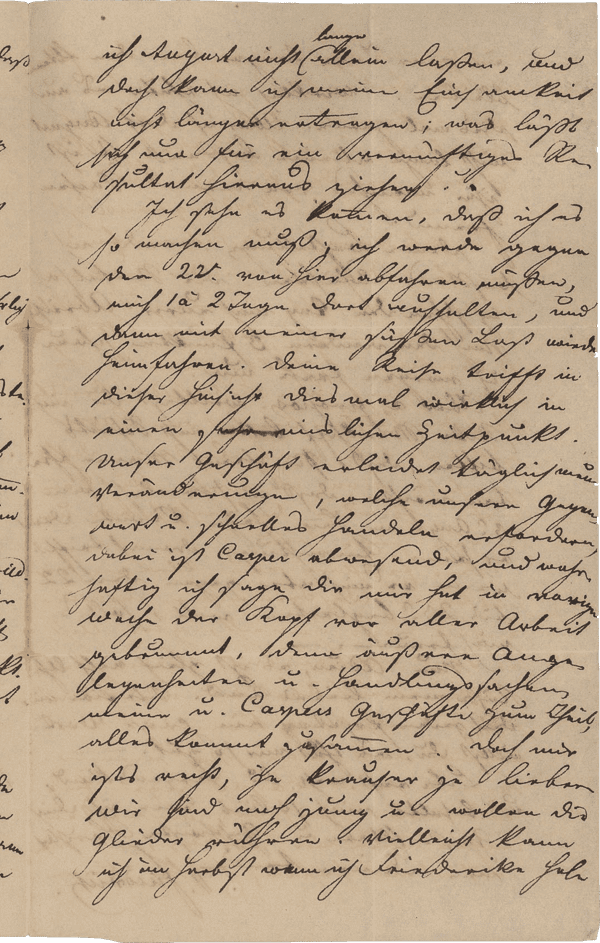 lange
ich August nicht allein laßen, und
doch kann ich meine Einsamkeit
nicht länger ertragen; was läßt
sich nun für ein vernünftiges Re-
sultat hieraus ziehen?
Ich sehe es kommen, daß ich es
so machen muß; ich werde gegen
den 22t. von hier abfahren müßen,
mich 1 à 2 Tage dort aufhalten, und
dann mit meiner süßen Last wieder
heimfahren. Deine Reise trifft in
dieser Hinsicht diesmal wirklich in
einen mislichen Zeitpunkt.
Unser Geschäft erleidet täglich neue
Veränderungen, welche unsere Gegen-
wart u. schnelles Handeln erfordern,
dabei ist Casper abwesend, und wahr-
haftig ich sage dir mir hat in voriger
Woche der Kopf vor aller Arbeit
gebrummt, denn äußere Ange-
legenheiten u. Handlungssachen,
meine u. Caspers Geschäfte zum Theil,
alles kommt zusammen. Doch mir
ists recht, je krauser je lieber
wir sind noch jung u. wollen die
Glieder rühren. Vielleicht kann
ich im Herbst wenn ich Friederike hole